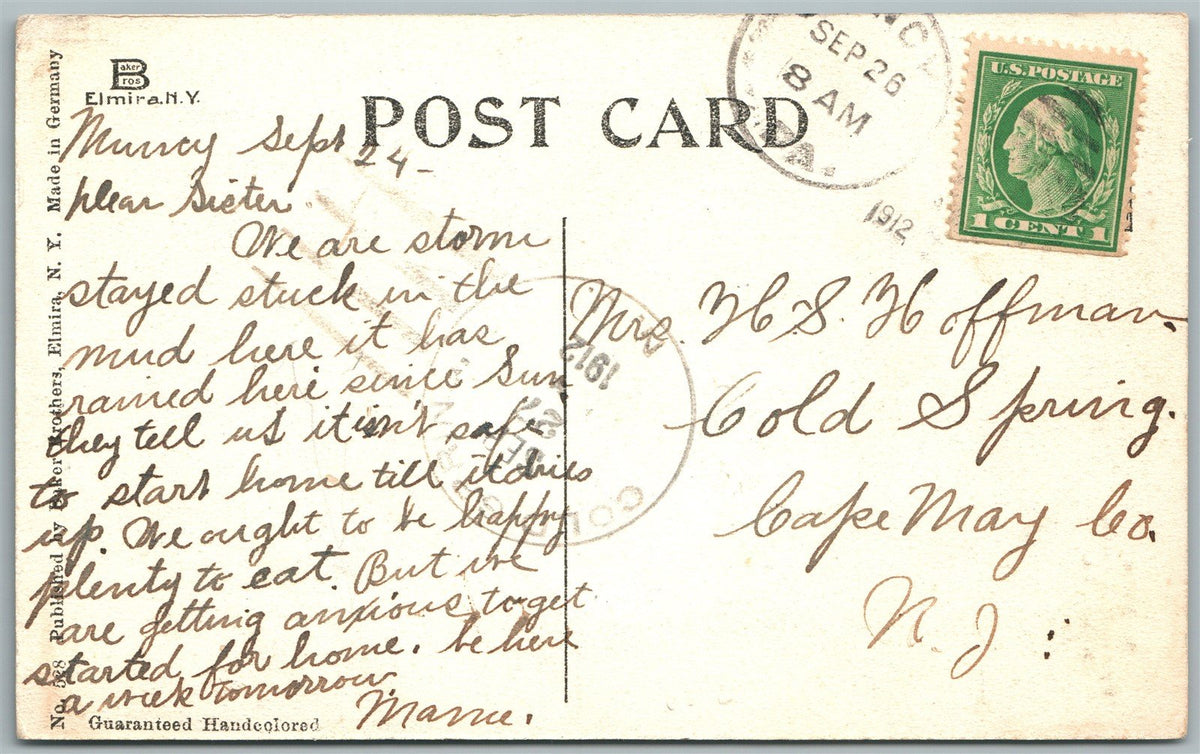 Baker Bros
Elmira, N.Y.
POST CARD
SEP 26
8 AM
PA.
1912
U.S. POSTAGE
1 CENT 1
Muncy Sept 24-
Dear Sister.
We are storm
stayed stuck in the
mud here it has
rained here since Sun
they tell us it isn't safe
to start home till it dries
up. We ought to be happy
plenty to eat. But we
are getting anxious to get
started for home. be here
a week tomorrow
Mame.
Mrs. H. S. Hoffman.
Cold Spring.
Cape May Co.
N. J.
1912
SEP 27
COLD SPRING
No. 528 Published by Baker Brothers, Elmira, N. Y. Made in Germany
Guaranteed Handcolored